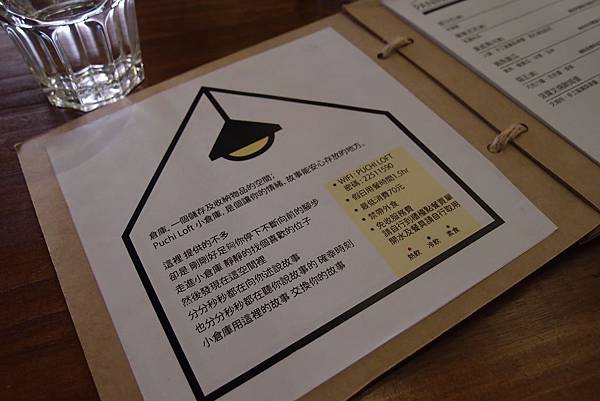 倉庫，一個儲存及收納物品的空間；
Puchi Loft 小倉庫，是個讓你的情緒、故事能安心存放的地方。
這裡 提供的不多
卻是 剛剛好足夠你停下不斷向前的腳步
走進小倉庫 靜靜的找個喜歡的位子
然後發現在這空間裡
分分秒秒都在向你述說故事
也分分秒秒都在聽你說故事的 確幸時刻
小倉庫用這裡的故事 交換你的故事
• WIFI: PUCHI LOFT
密碼：22511590
• 假日用餐時間1.5hr
• 最低消費70元
• 禁帶外食
• 免收服務費
請自行到櫃檯點餐買單
開水及餐具請自行取用
熱飲 冷飲 素食